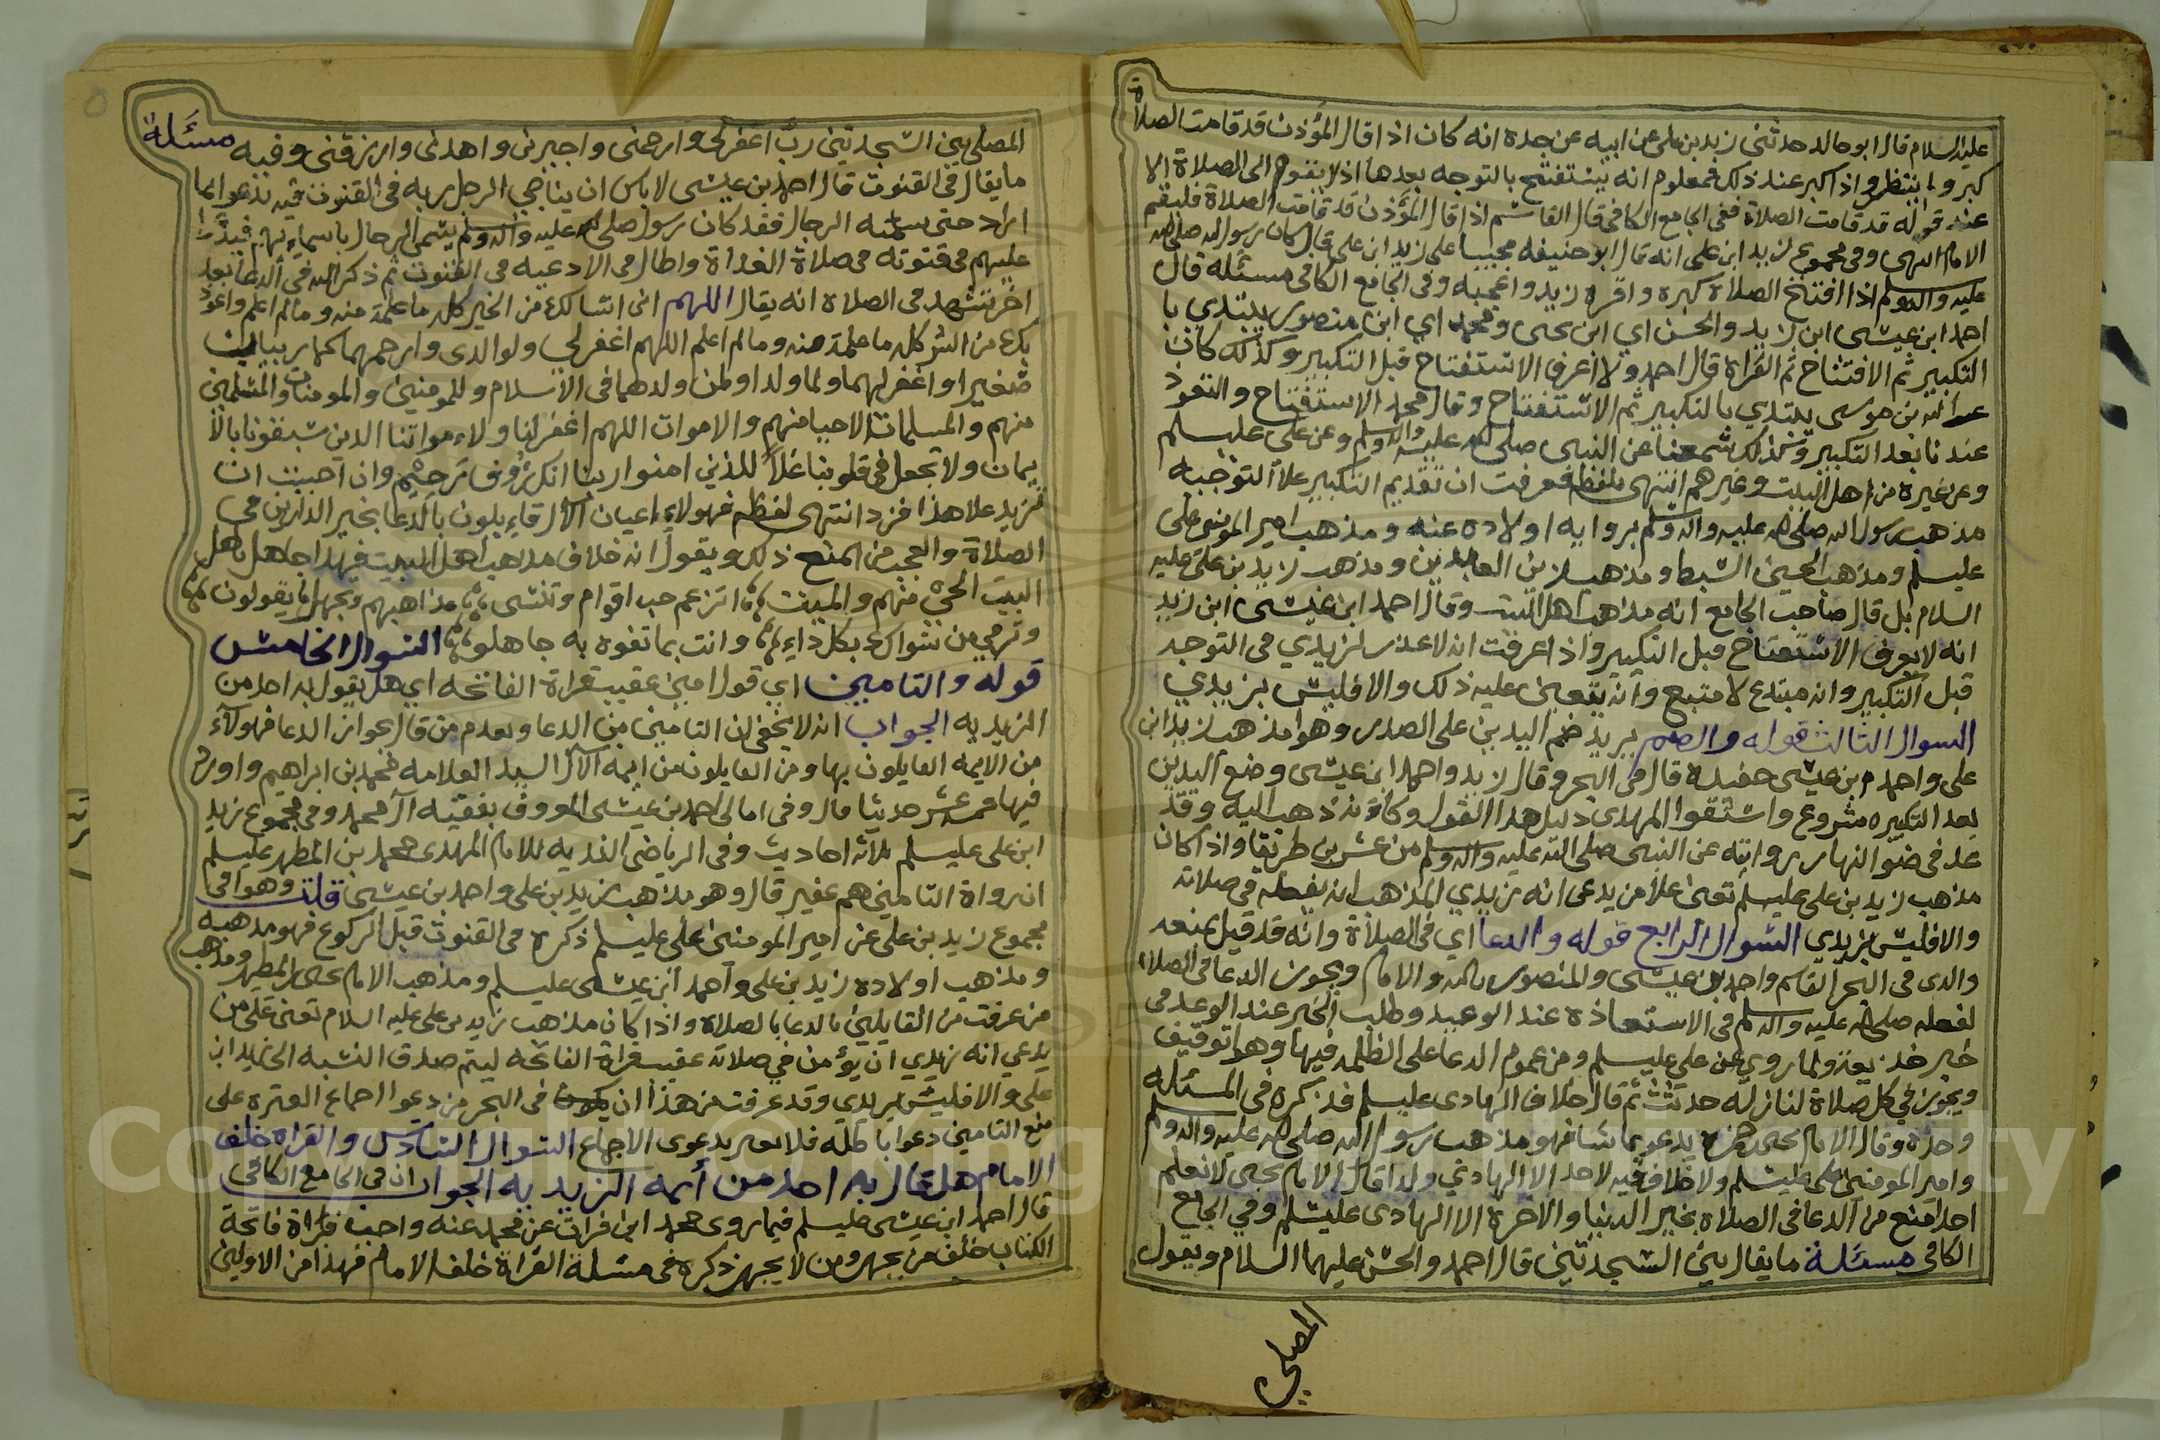 عليه السلام قال ابو خالد حدثني زيد بن علي عن ابيه عن جده انه كان اذا قال المؤذن قد قامت الصلاة
كبر ولم ينتظر واذا كبر عند ذلك فمعلوم انه يستفتح بالتوجه بعدها اذ لا يقوم الى الصلاة الا
عند قوله قد قامت الصلاة ففي الجامع الكافي قال القاسم اذا قال المؤذن قد قامت الصلاة فليقم
الامام انتهى وفي مجموع زيد ابن علي انه قال ابو حنيفه مجيبا على زيد ابن علي قال كان رسول الله صلى الله
عليه واله وسلم اذا افتتح الصلاة كبره واقره زيد واعجبه وفي الجامع الكافي مسئله قال
احمد ابن عيسى ابن زيد والحسن اي ابن يحيى ومحمد اي ابن منصور يبتدي با
التكبير ثم الافتتاح ثم القراة قال احمد ولا اعرف الاستفتاح قبل التكبير وكذلك كان
عبد الله بن موسى يبتدي بالتكبير ثم الاستفتاح وقال محمد الاستفتاح والتعوذ
عندنا بعد التكبير وكذلك سمعنا عن النبي صلى الله عليه واله وسلم وعن علي عليسلم
وعن غيره من اهل البيت وغيرهم انتهى بلفظه فعرفت ان تقديم التكبير علا التوجه
مذهب رسول الله صلى الله عليه واله وسلم بروايه اولاده عنه ومذهب امير المومنين علي
عليسلم ومذهب الحسين السبط ومذهب زين العابدين ومذهب زيد بن علي عليه
السلام بل قال صاحب الجامع انه مذهب اهل البيت وقال احمد ابن عيسى ابن زيد
انه لا يعرف الاستفتاح قبل التكبير واذا عرفت انه لا عذر لزيدي في التوجه
قبل التكبير وانه مبتدع لا متبع وانه يتعين عليه ذلك والا فليس بزيدي
السوال الثالث قوله والضم يريد ضم اليدين على الصدر وهو مذهب زيد ابن
علي واحمد بن عيسى حفيده قال في البحر وقال زيد واحمد ابن عيسى وضع اليدين
بعد التكبيره مشروع واستقوا المهدي دليل هذا القول وكانه ذهب اليه وقد
عد في ضو النهار رواته عن النبي صلى الله عليه واله وسلم من عشرين طريقا واذا كان
مذهب زيد بن علي عليسلم تعين علا من يدعي انه زيدي المذهب انه يفعله في صلاته
والا فليس بزيدي السوال الرابع قوله والدعا اي في الصلاة وانه قد قيل بمنعه
والذي في البحر القاسم واحمد بن عيسى والمنصور بالله والامام ويجوز الدعا في الصلاة
لفعله صلى الله عليه واله وسلم في الاستعاذه عند الوعيد وطلب الخير عند الوعد في
خبر حذيفة ولما روي عن علي عليسلم ومن عموم الدعا على الظلمه فيها وهو توقيف
ويجوز في كل صلاة لنازله حدثت ثم قال خلاف الهادي عليسلم فذكره في المسئله
وحده وقال الامام يحيى بن حمزه يدعو بما شا فهو مذهب رسول الله صلى الله عليه واله وسلم
وامير المومنين علي عليسلم ولا خلاف فيه لاحد الا الهادي ولذا قال الامام يحيى لا نعلم
احدا منع من الدعا في الصلاة بخير الدنيا والاخرة الا الهادي عليسلم وفي الجامع
الكافي مسئلة ما يقال بين السجدتين قال احمد والحسن عليهما السلام ويقول
المصلي
المصلي بين السجدتين رب اغفر لي وارحمني واجبرني واهدني وارزقني وفيه مسئلة
ما يقال في القنوت قال احمد بن عيسى لا باس ان يناجي الرجل ربه في القنوت فيه يدعو بما
اراد حتى سمته الرجال فقد كان رسول صلى الله عليه واله وسلم يسمي الرجال باسمايهم فيدعو
عليهم في قنوته في صلاة الغداة واطال في الادعيه في القنوت ثم ذكر الله في الدعا بعد
اخر تشهد في الصلاة انه يقال اللهم اني اسالك من الخير كله ما علمت منه وما لم اعلم واعوذ
بك من الشر كله ما علمت منه وما لم اعلم اللهم اغفر لي ولوالدي وارحمهما كما ربياني
صغيرا واغفر لهما ولما ولدا ولمن ولدهما في الاسلام وللمومنين والمومنات والمسلمين
منهم والمسلمات الاحيا منهم والاموات اللهم اغفر لنا ولاءمواتنا الدين سبقونا بالا
يمان ولا تجعل في قلوبنا غلا للذين امنوا ربنا انك رؤوف رحيم وان احببت ان
تزيد علا هذا فزد انتهى لفظه فهولاء اعيان الآل قايلون بالدعا بخير الدارين في
الصلاة والعجب من المنع ذلك ويقول انه خلاف مذهب اهل البيت فهذا جاهل باهل
البيت الحي منهم والميت اتزعم حب اقوام وتنسى مذاهبهم وتجهل ما يقولون
وترمي من سواك بكل داء وانت بما تفوه به جاهلو السوال الخامس
قوله والتامين اي قول امين عقيب قراة الفاتحه اي هل يقول به احد من
الزيديه الجواب انه لا يخفى ان التامين من الدعا وبعدم من قال بجواز الدعا فهولاء
من الايمه القايلون بها ومن القايلون من ايمه الآل السيد العلامه محمد بن ابراهيم واورد
فيها خمسه عشر حديثا قال وفي امالي احمد بن عيسى المعروف بفقيه آل محمد وفي مجموع زيد
ابن علي عليسلم ثلاثه احاديث وفي الرياض النديه للامام المهدي محمد بن المطهر عليسلم
ان رواة التامين جم غفير قال وهو مذهب زيد بن علي واحمد بن عيسى قلت وهو في
مجموع زيد بن علي عن امير المومنين علي عليسلم ذكره في القنوت قبل الركوع فهو مذهبه
ومذهب اولاده زيد بن علي واحمد ابن عيسى عليسلم ومذهب الامام يحيى والمطهر ومذهب
من عرفت من القايلين بالدعا بالصلاه واذا كان مذهب زيد بن علي عليه السلام تعين على من
يدعي انه زيدي ان يؤمن في صلاته عقيب قراة الفاتحه ليتم صدق النسبه الى زيد ابن
علي والا فليس بزيدي وقد عرفت من هذا ان في البحر من دعوا اجماع العتره على
منع التامين دعوا باطله فلا يغتر بدعوى الاجماع السوال السادس والقراه خلف
الامام هل قال به احد من أيمه الزيديه الجواب ان في الجامع الكافي
قال احمد ابن عيسى عليسلم فيما روى محمد ابن فرات عن محمد عنه واجب قراة فاتحة
الكتاب خلف من يجهر ومن لا يجهر ذكره في مسئلة القراة خلف الامام فهذا من الاولين